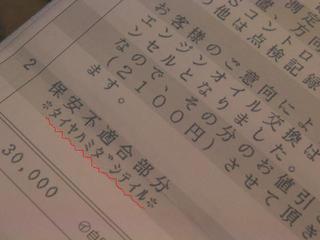 測定
方向
Sコントロ
の他は点検記録
お客様のご意向によ
エンジンオイル交換は
ンセルとなりました。
なので、その分のお値引
(2100円)させて頂き
ます。
2
保安不適合部分
※タイヤハミダシテイル※
30,000